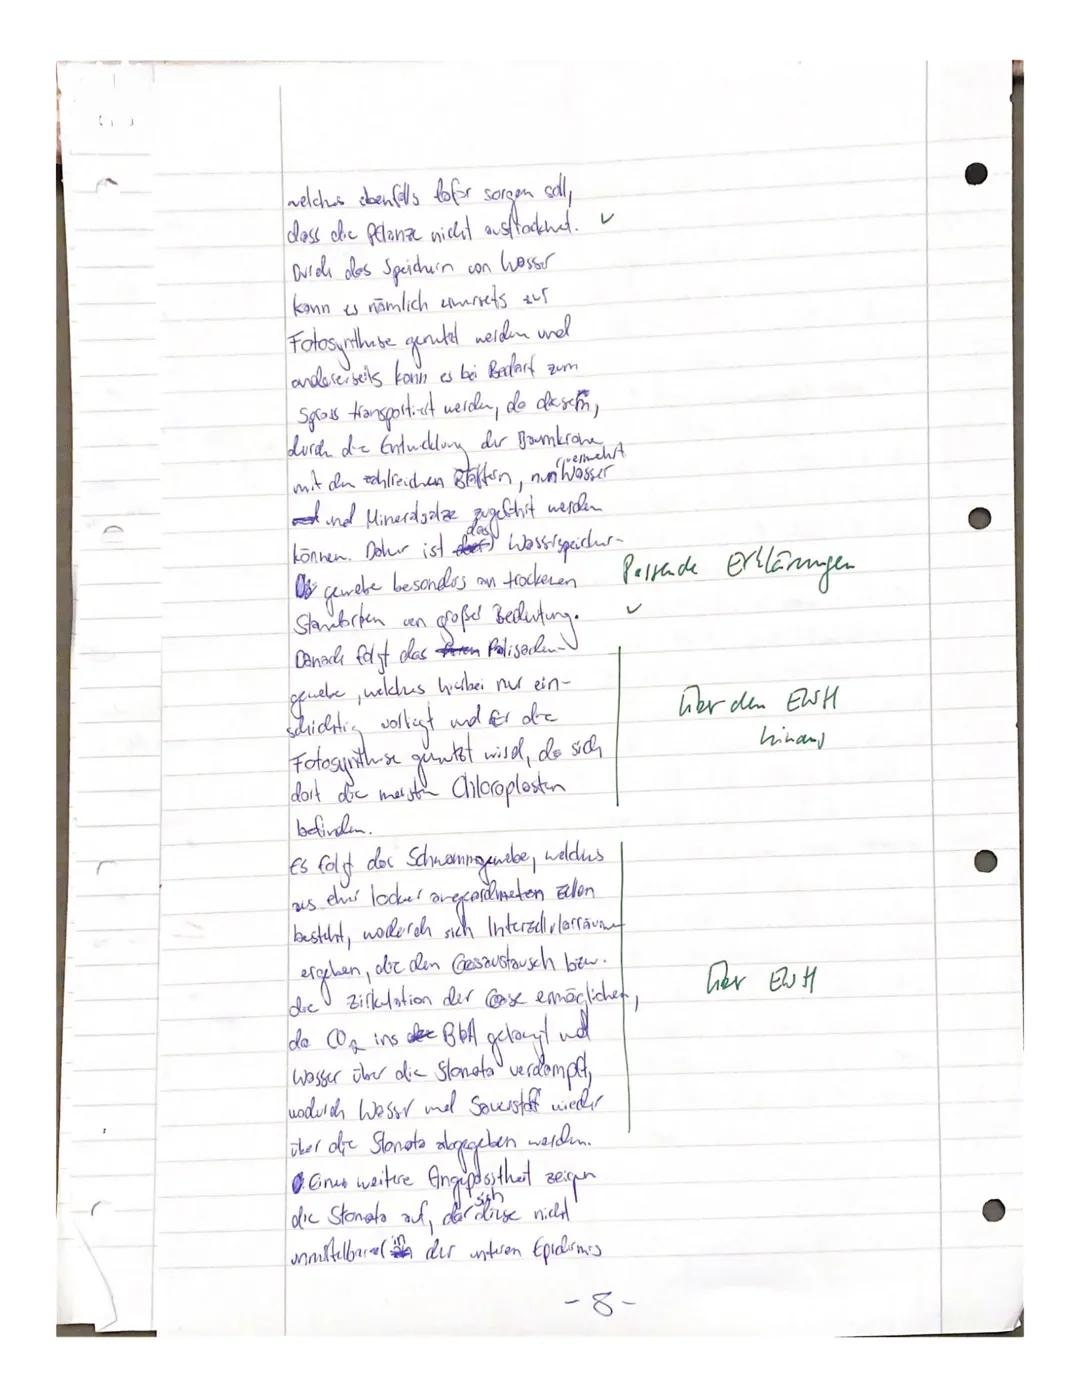 welches ebenfalls dafür sorgen soll,
dass die Pflanze nicht austrocknet. ✓
Durch das Speichern von Wasser
kann es nämlich einerseits zur
Fotosynthese genutzt werden und
andererseits kann es bei Bedarf zum
Spross transportiert werden, da diesem,
durch die Entwicklung der Baumkrone
mit den zahlreichen Blättern, nun vermehrt Wasser
und Mineralsalze zugeführt werden
können. Daher ist das Wasserspeicher-
gewebe besonders an trockenen
Passende Erklärungen
Standorten von großer Bedeutung. ✓
Danach folgt das Palisaden-
gewebe, welches hierbei nur ein-
schichtig vorliegt und für die
über den EWH
hinaus
Fotosynthese genutzt wird, da sich
dort die meisten Chloroplasten
befinden.
Es folgt das Schwammgewebe, welches
aus eher locker angeordneten Zellen
besteht, wodurch sich Interzellularräume
ergeben, die den Gasaustausch bzw.
die Zirkulation der Gase ermöglichen,
über EWH
da CO2 ins Blatt gelangt und
Wasser über die Stomata verdampft,
wodurch Wasser und Sauerstoff wieder
über die Stomata abgegeben werden.
Eine weitere Angepasstheit zeigen
die Stomata auf, da sich diese nicht
unmittelbar in der unteren Epidermis
-8-